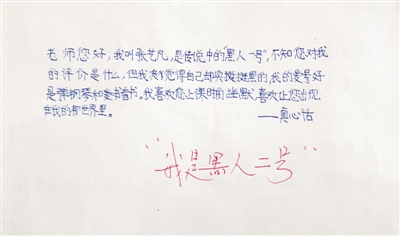 老师您好，我叫张艺凡，是传说中的"黑人一号"，不知您对我
的评价是什么，但我决觉得自己却实挺挺黑的，我的爱号好
是弹钢琴和爱书看书。我喜欢您上课时的幽默，喜欢让您出现
在我的世界里。
——真心话
"我是黑人二号"